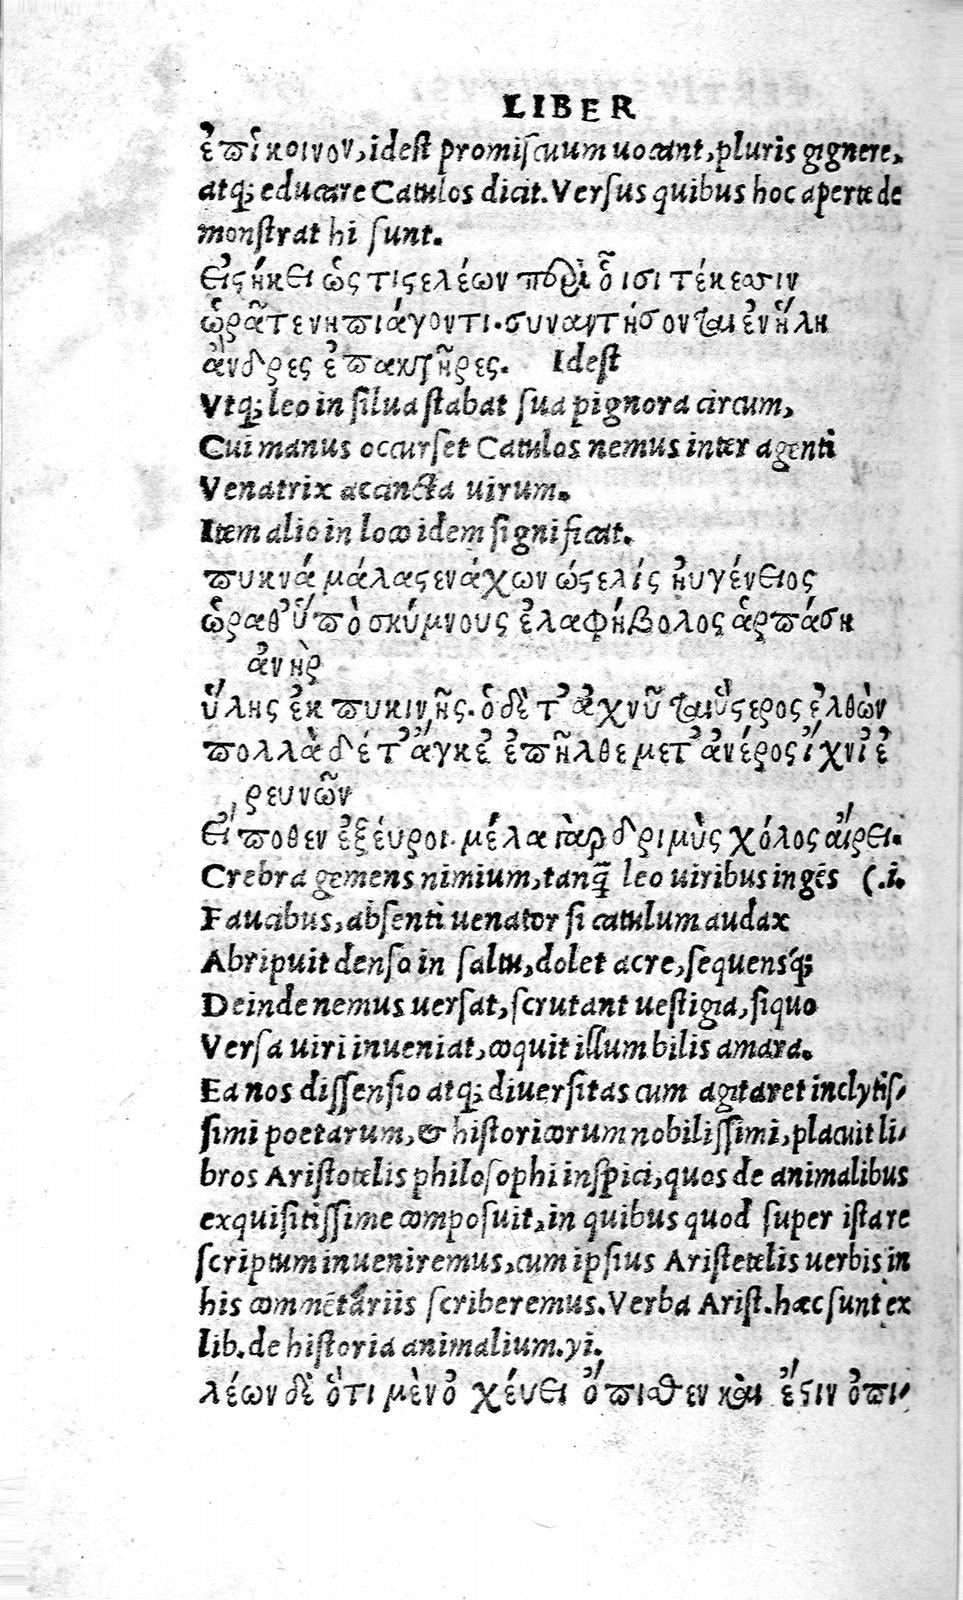 LIBER
ἐπίκοινον, idest promiscuum uocant, pluris gignere,
atq; educare Catulos dicit. Versus quibus hoc aperte de
monstrat hi sunt.
Εἱςήκει ὥς τιςελέων περὶ ὃισι τέκεσσιν
ὧρᾶτενηπιάγοντι. συναντήσονται ἐνὕλη
ἄνδρες ἐπακτῆρες. Idest
Vtq; leo in silua stabat sua pignora circum,
Cui manus occurset Catulos nemus inter agenti
Venatrix accincta uirum.
Item alio in loco idem significat.
πυκνά μάλαςενάχων ὡςελίς ἠυγένειος
ὧραθ᾽ὕπὸσκύμνους ἐλαφήβολος ἁρπάση
ἀνὴρ
ὕλης ἐκ πυκινῆς. ὁδὲτ᾽ἀχνῦται ὕςερος ἐλθὼν
πολλὰδέτ᾽ἄγκἐ ἐπῆλθε μετ᾽ἀνέρος ἴχνι᾽ἐ
ρευνῶν
Εἴποθεν ἐξεύροι. μέλα γὰρ δριμὺς χόλος αἴρει.
Crebra gemens nimium, tanq̃ leo uiribus ingẽs (.i.
Faucibus, absenti uenator si catulum audax
Abripuit denso in saltu, dolet acre, sequensq́;
Deinde nemus uersat, scrutant uestigia, siquo
Versa uiri inueniat, coquit illum bilis amara.
Ea nos dissensio atq; diuersitas cum agitaret inclytis-
simi poetarum, & historicorum nobilissimi, placuit li-
bros Aristotelis philosophi inspici, quos de animalibus
exquisitissime composuit, in quibus quod super istare
scriptum inueniremus, cum ipsius Aristetelis uerbis in
his commẽtariis scriberemus. Verba Arist. hæc sunt ex
lib. de historia animalium. yi.
λέων δὲ ὅτι μὲνὀ χέυει ὄπισθεν καὶ ἔςιν ὀπι-